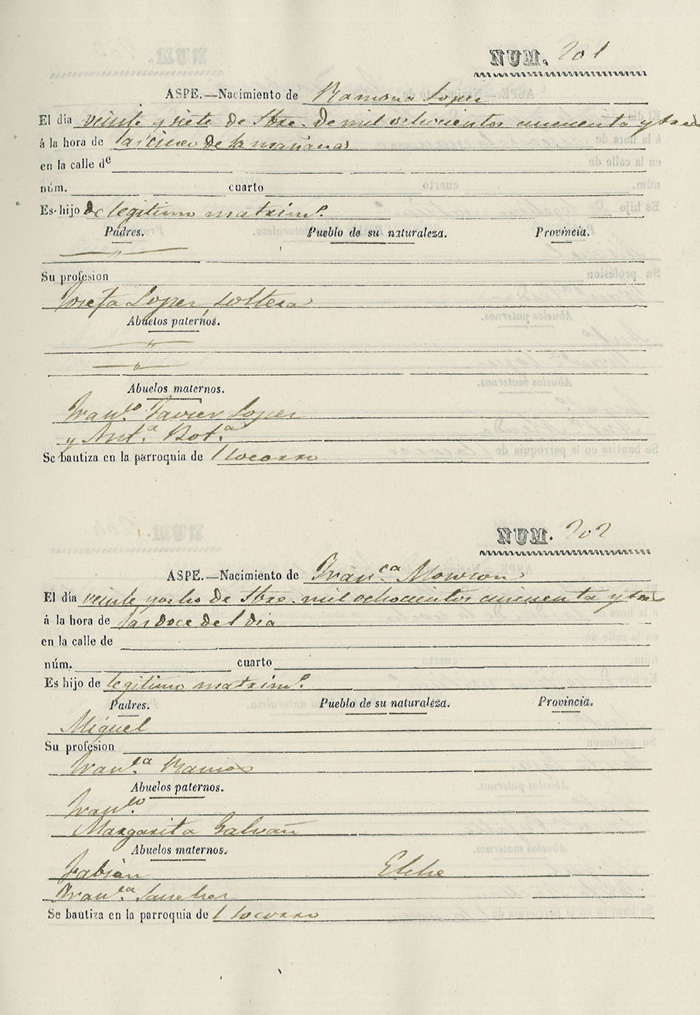 NUM. 201
ASPE.—Nacimiento de Ramona Lopez
El día veinte y siete de Stbre. de mil ochocientos cincuenta y tres
á la hora de las cinco de la mañana
en la calle de
núm. cuarto
Es hijo de legitimo matrimo.
Padres. Pueblo de su naturaleza. Provincia.
Su profesion
Josefa Lopez soltera
Abuelos paternos.
Abuelos maternos.
Franco. Javier Lopez
y Anta. Bota.
Se bautiza en la parroquia de l Socorro
NUM. 202
ASPE.—Nacimiento de Franca
El día veinte y ocho de Stbre. mil ochocientos cincuenta y tres
á la hora de las doce del dia
en la calle de
núm. cuarto
Es hijo de legitimo matrimo.
Padres. Pueblo de su naturaleza. Provincia.
Miguel
Su profesion
Franca
Abuelos paternos.
Franco
Margarita Galvañ
Abuelos maternos.
Fabian Elche
Franca Sanchez
Se bautiza en la parroquia de l Socorro